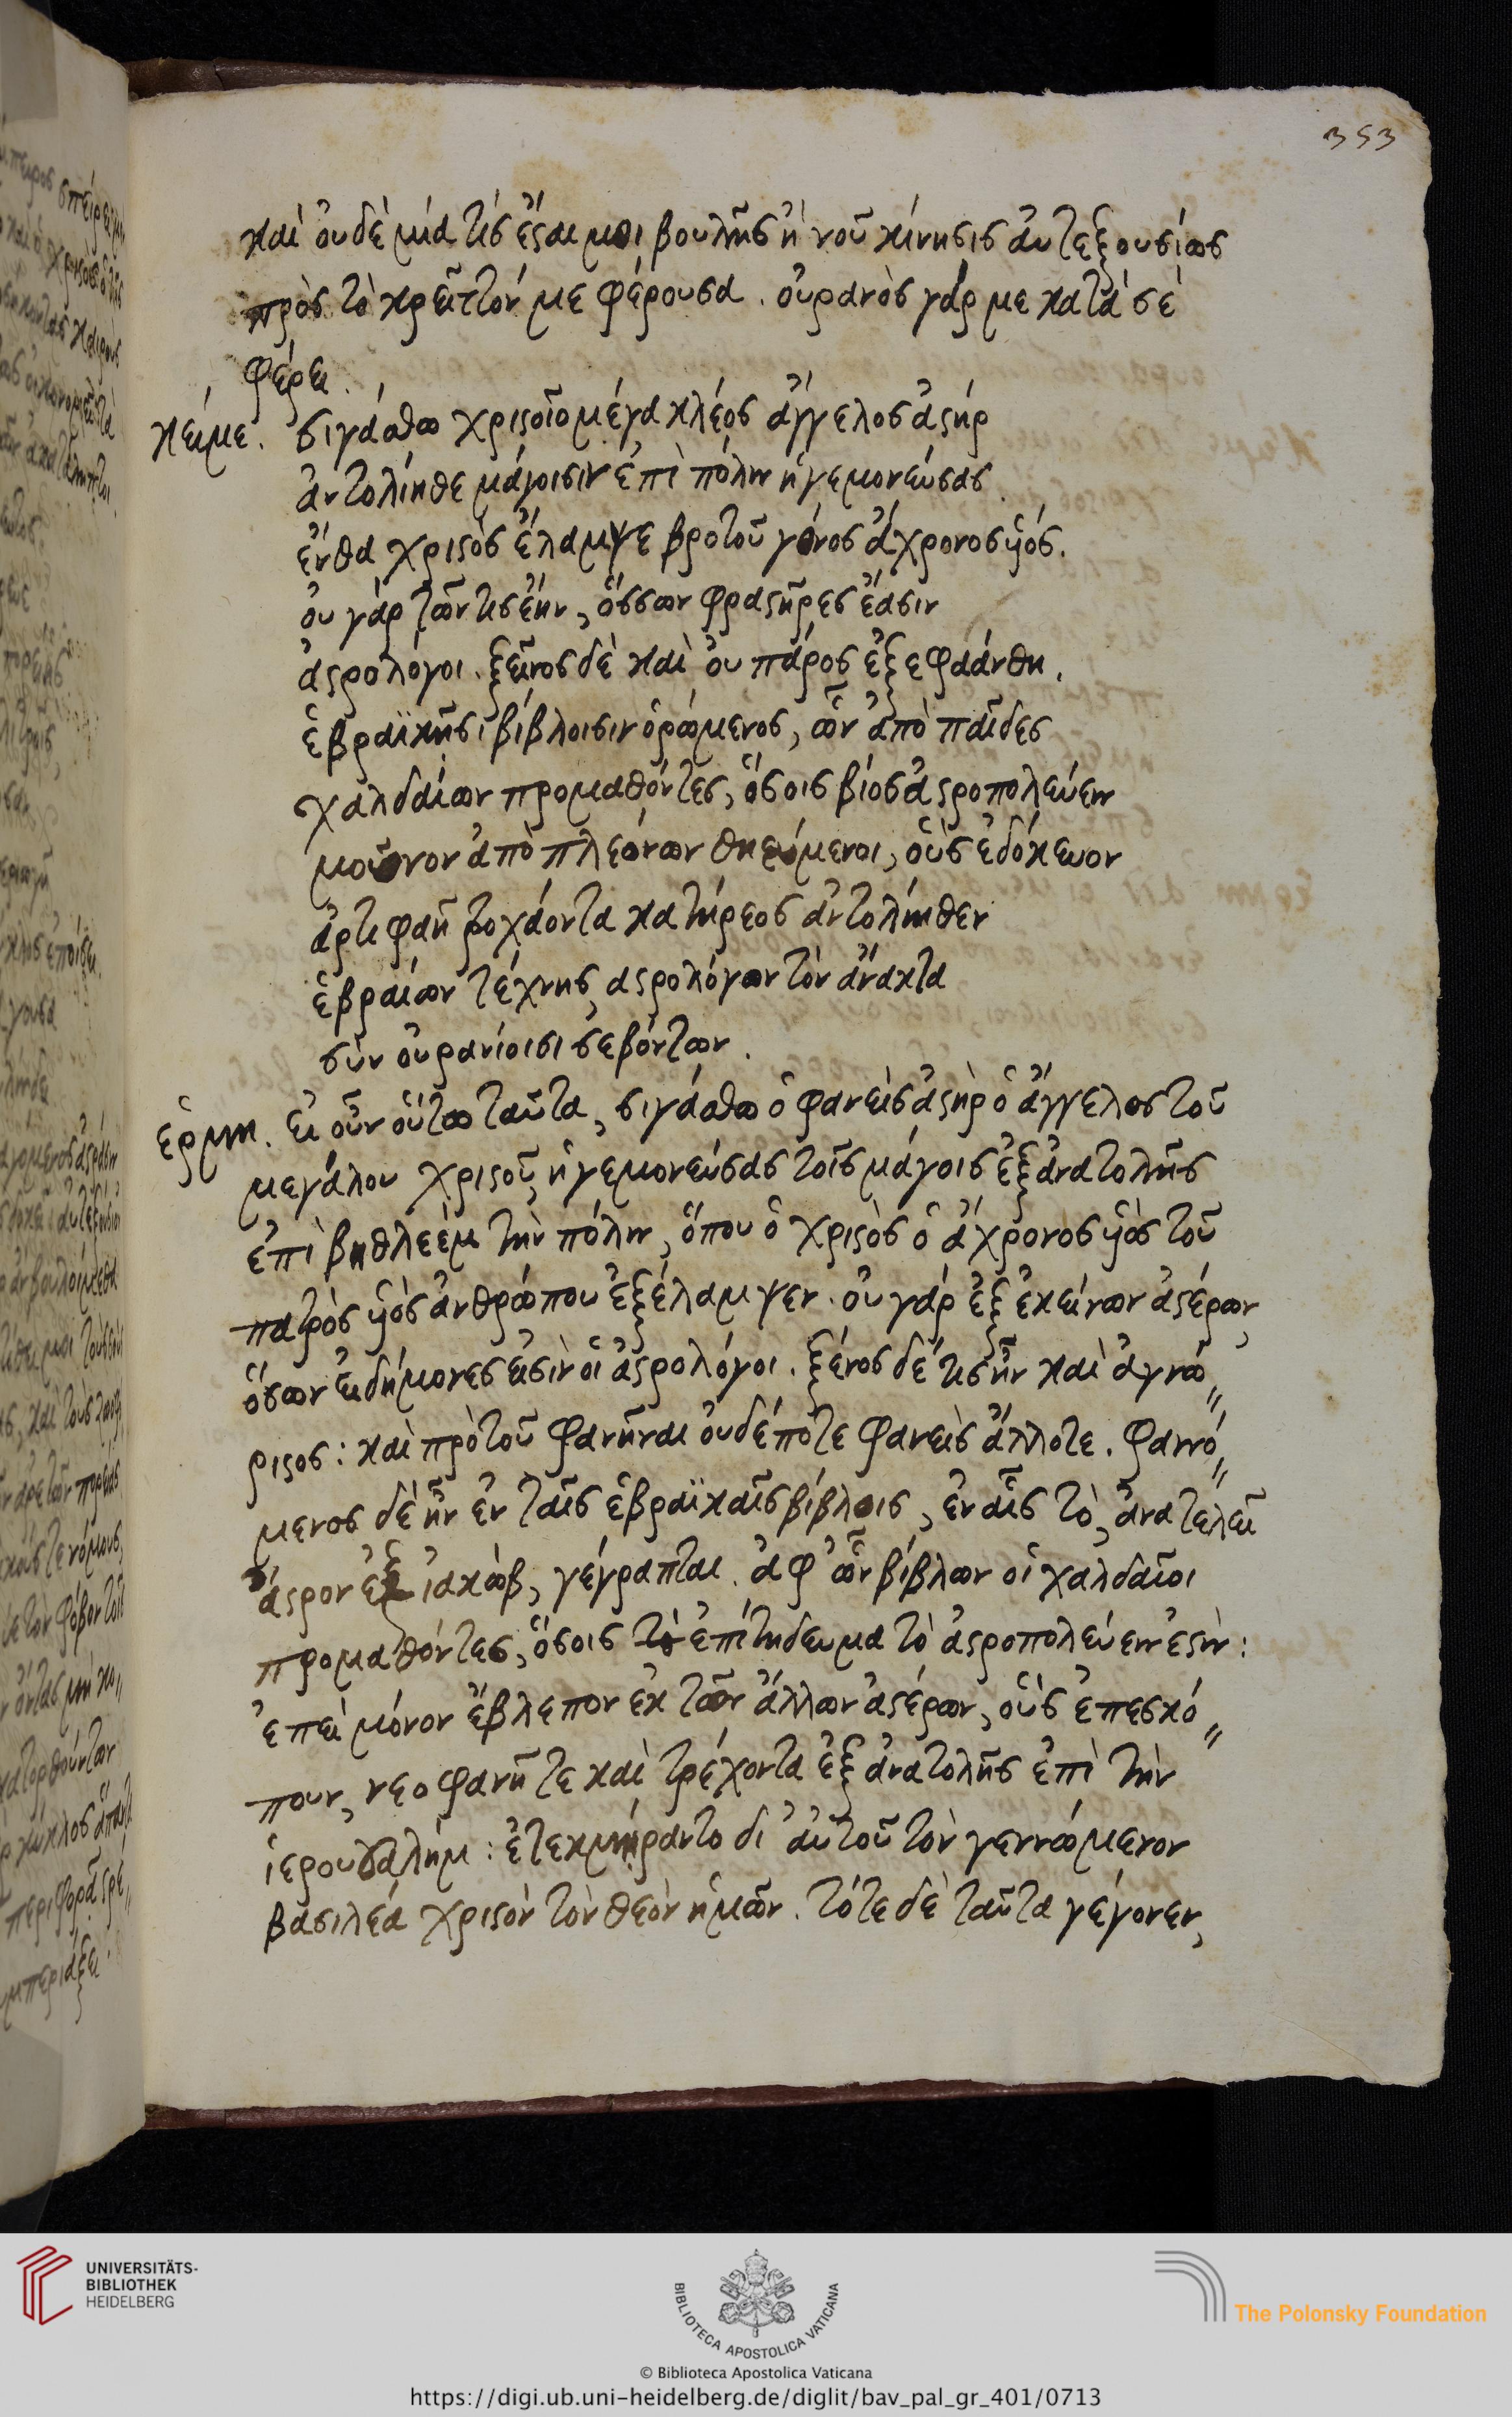 353
καὶ ὀυδὲ μία τὶς ἔσται μοι βουλῆς ἢ νοῦ κίνησις ἀυτεξουσίως
πρὸς τὸ κρεῖττόν με φέρουσα. ὀυρανὸς γάρ με κατὰ σὲ
φέρει.
κείμε. σιγάσθω χριστοῖο μέγα κλέος ἄγγελος ἀστήρ
ἀντολίηθε μάγοισιν ἐπὶ πόλιν ἡγεμονεύσας.
ἔνθα χριστὸς ἔλαμψε βροτοῦ γόνος ἄχρονος ὑός.
ὀυ γάρ τῶν τις ἔην, ὅσσων φραστῆρες ἔασιν
ἀστρολόγοι. ξεῖνος δὲ καὶ ὀυ πάρος ἐξεφαάνθη.
ἑβραϊκῆσι βίβλοισιν ὁρώμενος, ὧν ἀπὸ παῖδες
χαλδαίων προμαθόντες, ὅσοις βίος ἀστροπολεύειν
μοῦνον ἀπὸ πλεόνων θηεύμενοι, οὓς ἐδόκευον
ἀρτιφαῆ τροχάοντα κατήρεος ἀντολίηθεν
ἑβραίων τέχνης αστρολόγων τὸν ἄνακτα
σὺν ὀυρανίοισι σεβόντων.
ἑρμη. ει οὖν οὕτω ταῦτα, σιγάσθω ὁ φανεὶς ἀστὴρ ὁ ἄγγελος τοῦ
μεγάλου χριστοῦ, ἡγεμονεύσας τοῖς μάγοις ἐξ ἀνατολῆς
ἐπὶ βηθλεὲμ τὴν πόλιν, ὅπου ὁ χριστὸς ὁ ἄχρονος ὑὸς τοῦ
πατρὸς ὑὸς ἀνθρώπου ἐξέλαμψεν. ὀυ γάρ ἐξ ἐκείνων ἀστέρων,
ὅσων ἐιδήμονες εἰσὶν οἱ ἀστρολόγοι. ξένος δέ τις ἦν καὶ ἀγνώ
ριστος: καὶ πρὸ τοῦ φανῆναι ὀυδέποτε φανεὶς ἄλλοτε. φαινό
μενος δὲ ἦν ἐν ταῖς ἑβραϊκαῖς βίβλοις, ἐν αἷς τὸ, ἀνατελεῖ
ἄστρον ἐξ ἰακὼβ, γέγραπται. ἀφ' ὧν βίβλων οἱ χαλδαῖοι
προμαθόντες, ὅσοις τὸ ἐπίτηδευμα τὸ ἀστροπολεύειν ἐστὶν:
ἐπεὶ μόνον ἔβλεπον ἐκ τῶν ἄλλων ἀστέρων, οὓς ἐπεσκό
πουν, νεοφανῆ τε καὶ τρέχοντα ἐξ ἀνατολῆς ἐπὶ τὴν
ἱερουσαλήμ: ἐτεκμήραντο δι' αὐτοῦ τὸν γεννώμενον
βασιλέα χριστὸν τὸν θεὸν ἡμῶν. τότε δὲ ταῦτα γέγονεν,
UNIVERSITÄTS-
BIBLIOTHEK
HEIDELBERG
BIBLIOTECA APOSTOLICA VATICANA
© Biblioteca Apostolica Vaticana
The Polonsky Foundation
https://digi.ub.uni-heidelberg.de/diglit/bav_pal_gr_401/0713